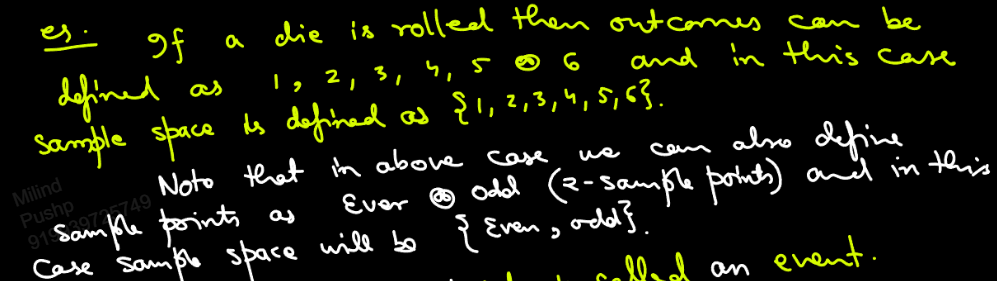 eg. If a die is rolled then outcomes can be
defined as 1, 2, 3, 4, 5 or 6 and in this case
sample space is defined as {1, 2, 3, 4, 5, 6}.
Note that in above case we can also define
sample points as Even or odd (2-sample points) and in this
case sample space will be {Even, odd}.
called an event.
Milind
Pushp